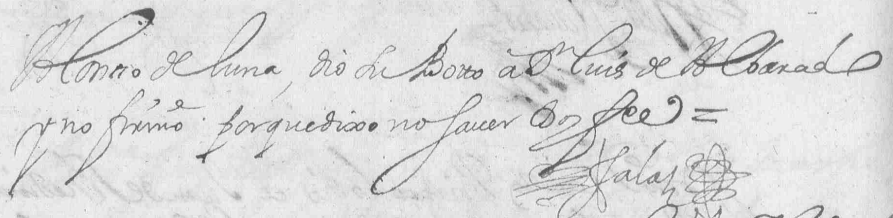 Alonsso de luna, dio su Botto â Dn luis de Albarado
y no firmo porquedixo no sauer Doy fee =
Salaz